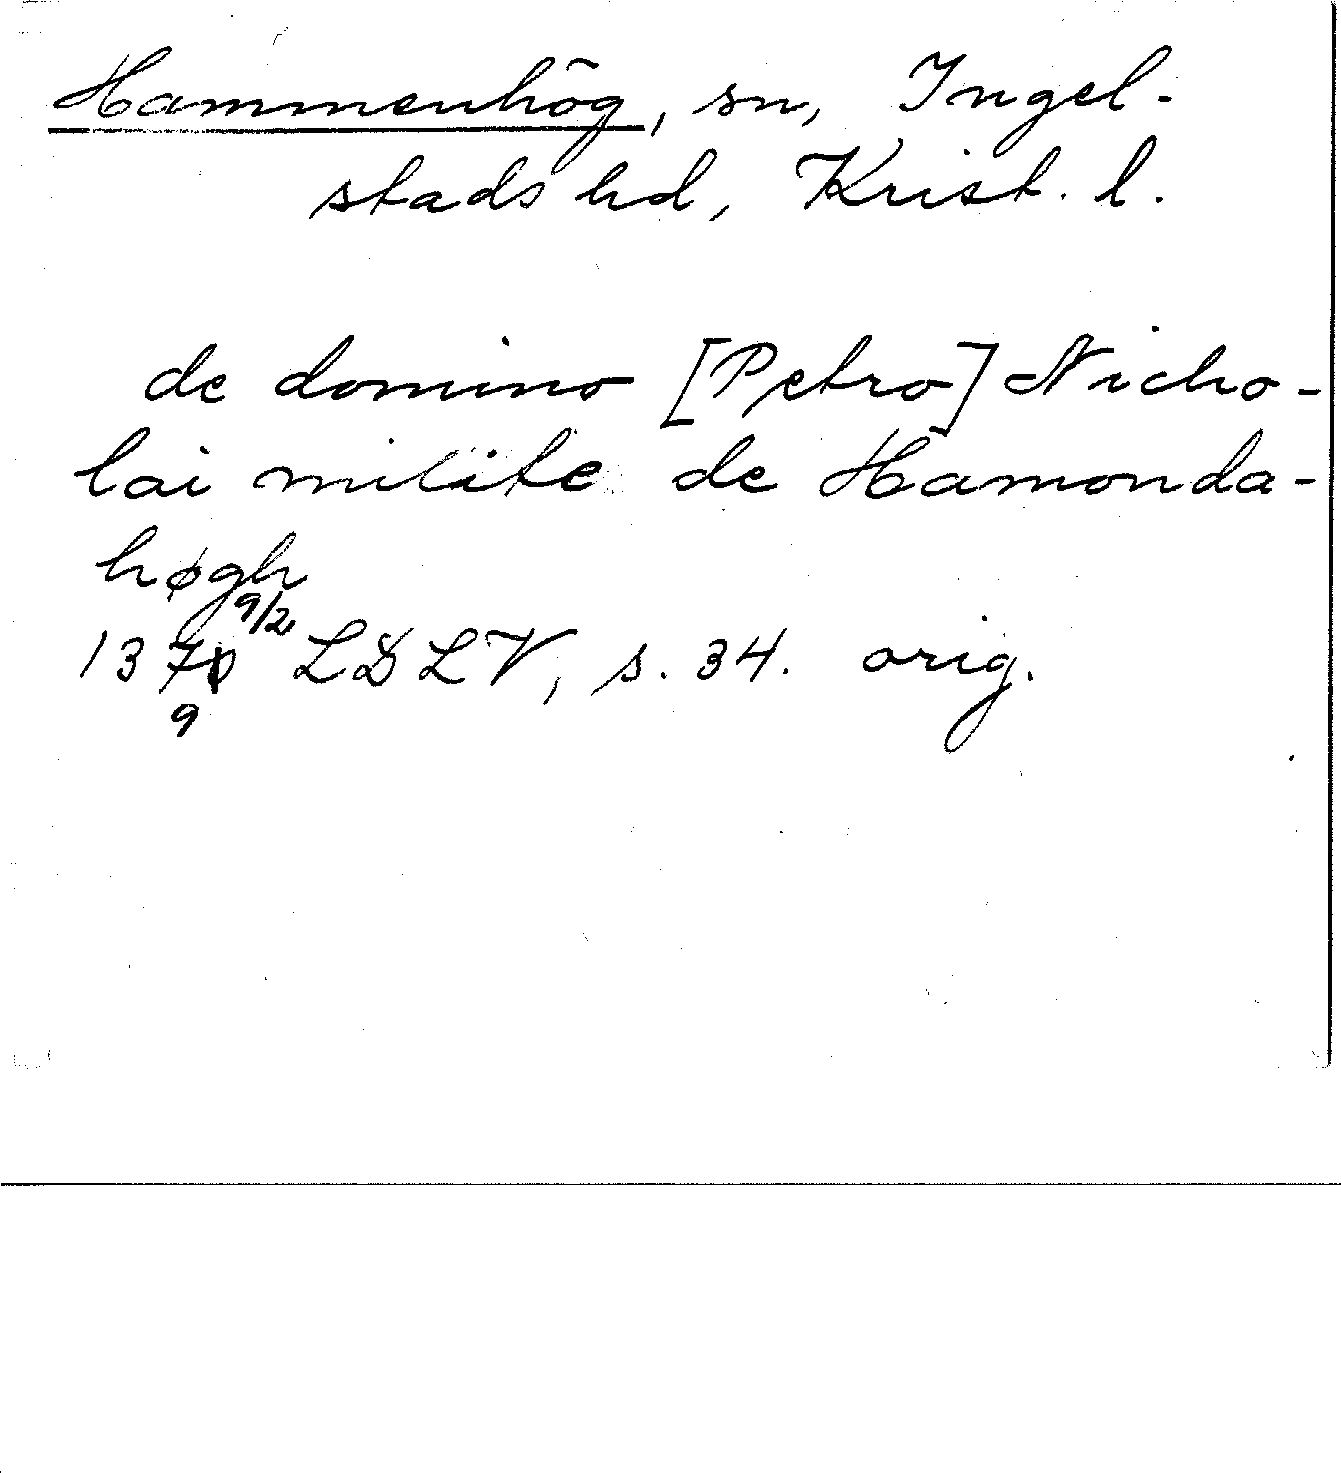 Hammenhög, sn, Ingel-
stads hd, Krist. l.
de domino [Petro] Nicho-
lai milite de Hamonda-
høgh
9/2
1370 LDLV, s. 34. orig.
9